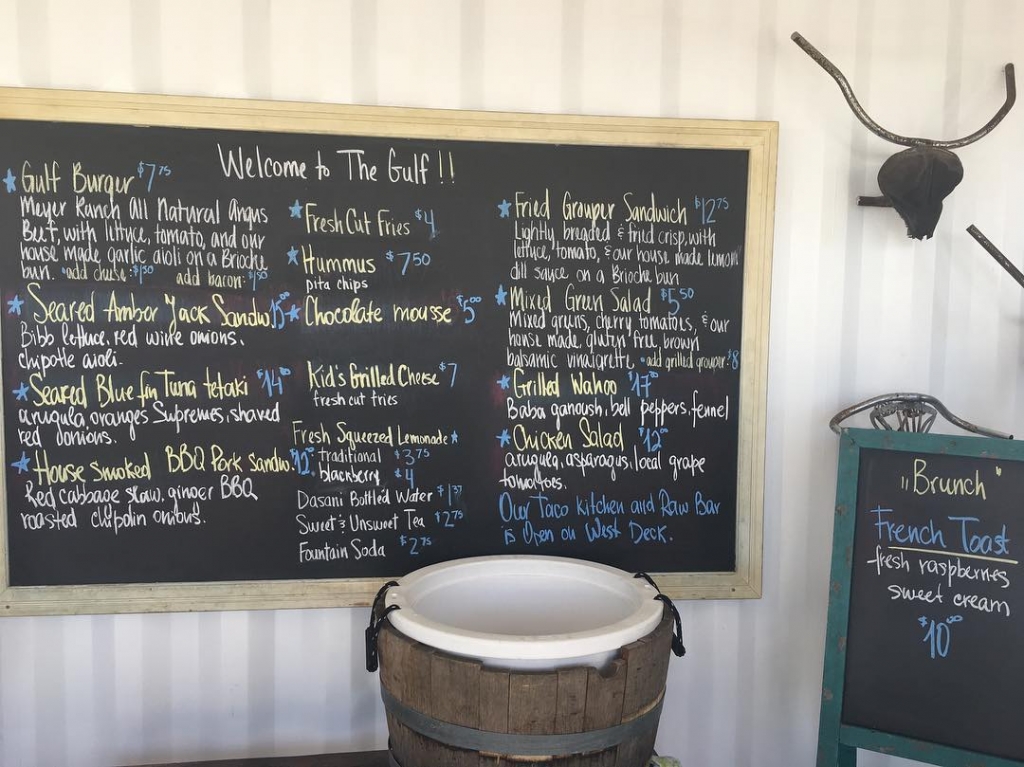 Welcome to The Gulf !!
Gulf Burger $7.75
Meyer Ranch All Natural Angus
Beef, with lettuce, tomato, and our
house made garlic aioli on a Brioche
bun. *add cheese: $1.50 add bacon: $1.50
Seared Amber Jack Sandw. 15.00
Bibb lettuce, red wine onions,
chipotle aioli.
Seared Blue fin Tuna tetaki $14.00
arugula, oranges Supremes, shaved
red onions.
House Smoked BBQ Pork Sandw. $12.00
Red cabbage slaw, ginger BBQ
roasted chipolin onions.
Fresh Cut Fries $4
Hummus $7.50
pita chips
Chocolate mousse $5.00
Kid's Grilled Cheese $7
fresh cut fries
Fresh Squeezed Lemonade
traditional $3.75
blackberry $4
Dasani Bottled Water $1.37
Sweet & Unsweet Tea $2.75
Fountain Soda $2.75
Fried Grouper Sandwich $12.75
Lightly breaded & fried crisp, with
lettuce, tomato, & our house made lemon
dill sauce on a Brioche bun
Mixed Green Salad $5.50
Mixed greens, cherry tomatoes, & our
house made, gluten free, brown
balsamic vinaigrette. *add grilled grouper: $8
Grilled Wahoo $17.00
Baba ganoush, bell peppers, fennel
Chicken Salad $12.00
arugula, asparagus, local grape
tomatoes.
Our Taco kitchen and Raw Bar
is Open on West Deck.
"Brunch"
French Toast
fresh raspberries
sweet cream
$10.00